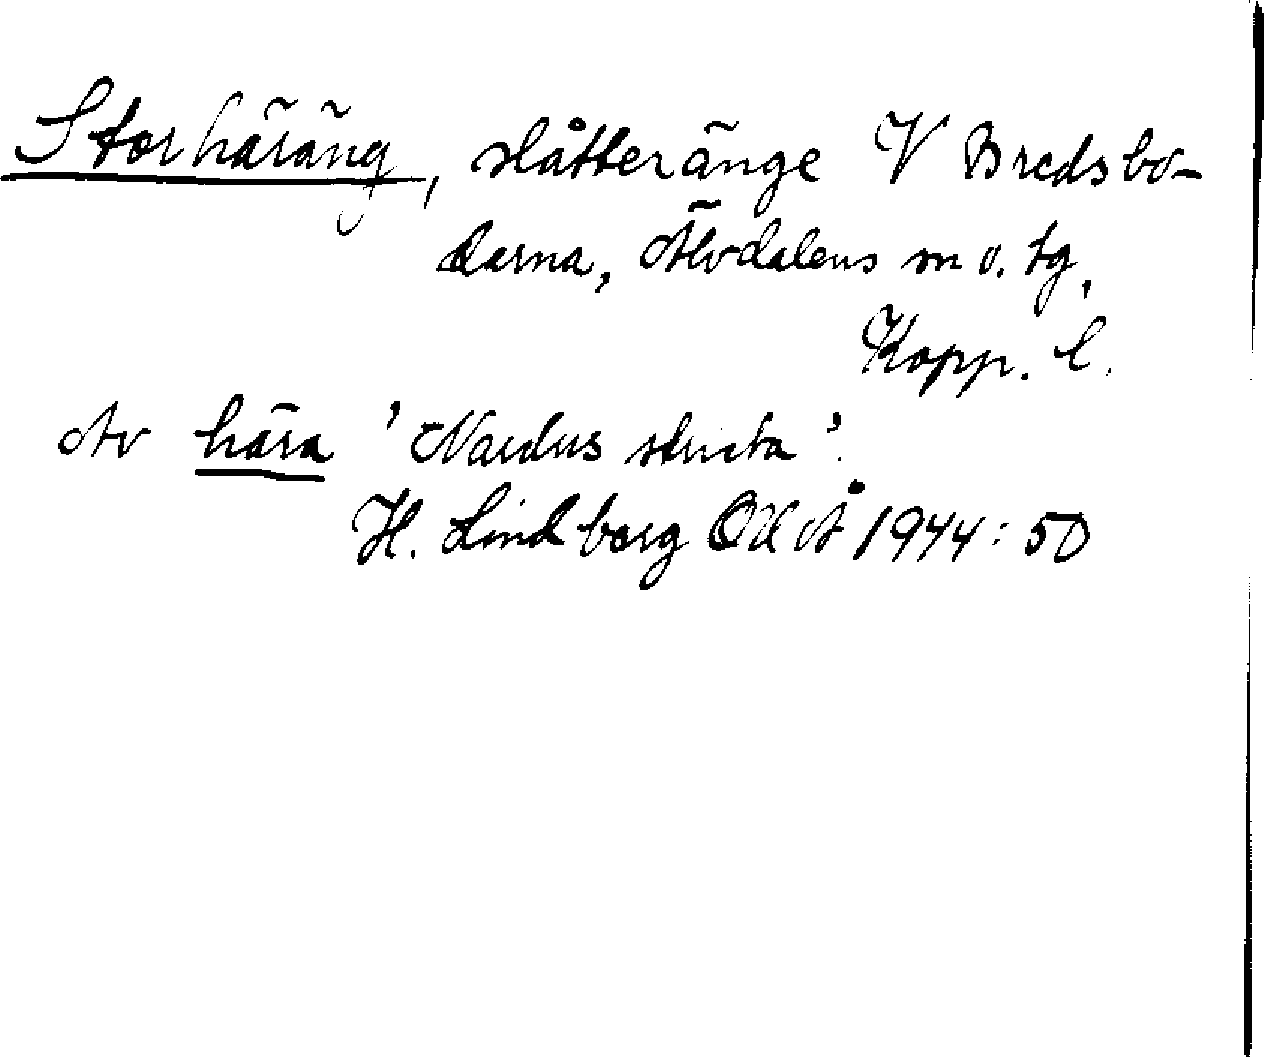 Storhäräng, slåtteränge V Bredsbo-
darna, Älvdalens sn o. tg,
Kopp. l.
Av hära 'Nardus stricta'.
H. Lindberg OUÅ 1944: 50